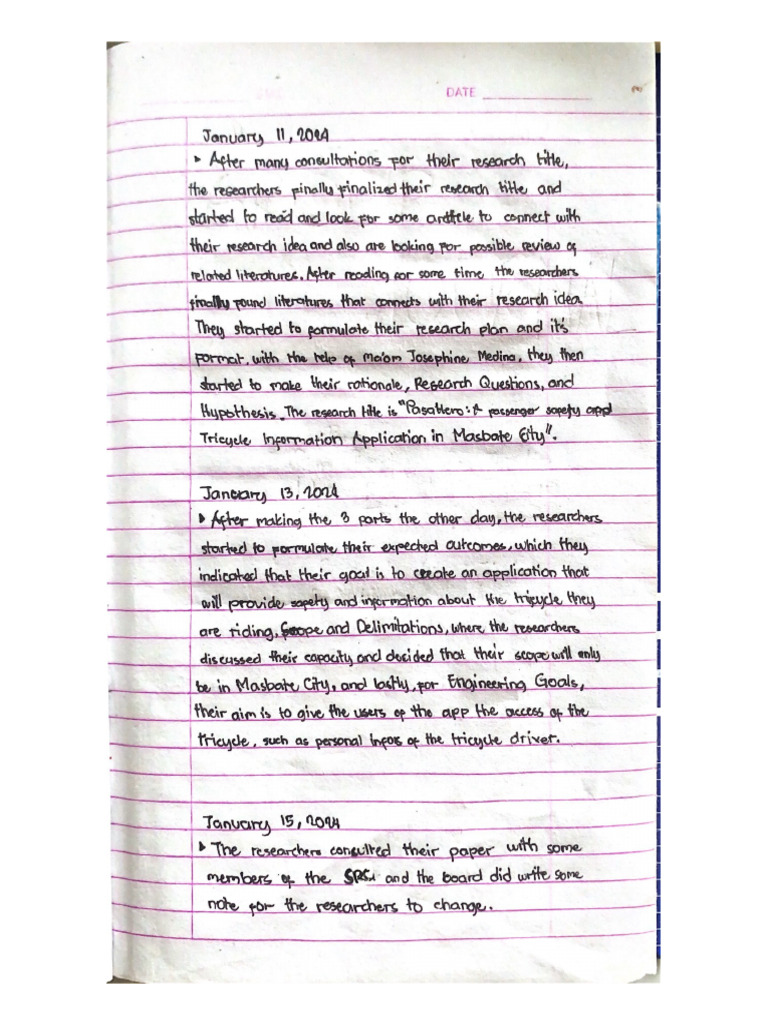 DATE
January 11, 2024
▸ After many consultations for their research title,
the researchers finally finalized their research title and
started to read and look for some article to connect with
their research idea and also are looking for possible review of
related literatures. After reading for some time the researchers
finally found literatures that connects with their research idea.
They started to formulate their research plan and it's
format, with the help of ma'am Josephine Medina, they then
started to make their rationale, Research Questions, and
Hypothesis. The research title is "PasaHero: A passenger safety and
Tricycle Information Application in Masbate City".
January 13, 2024
▸ After making the 3 parts the other day, the researchers
started to formulate their expected outcomes, which they
indicated that their goal is to create an application that
will provide safety and information about the tricycle they
are riding, Scope and Delimitations, where the researchers
discussed their capacity and decided that their scope will only
be in Masbate City, and lastly, for Engineering Goals,
their aim is to give the users of the app the access of the
tricycle, such as personal infos of the tricycle driver.
January 15, 2024
▸ The researchers consulted their paper with some
members of the and the board did write some
note for the researchers to change.